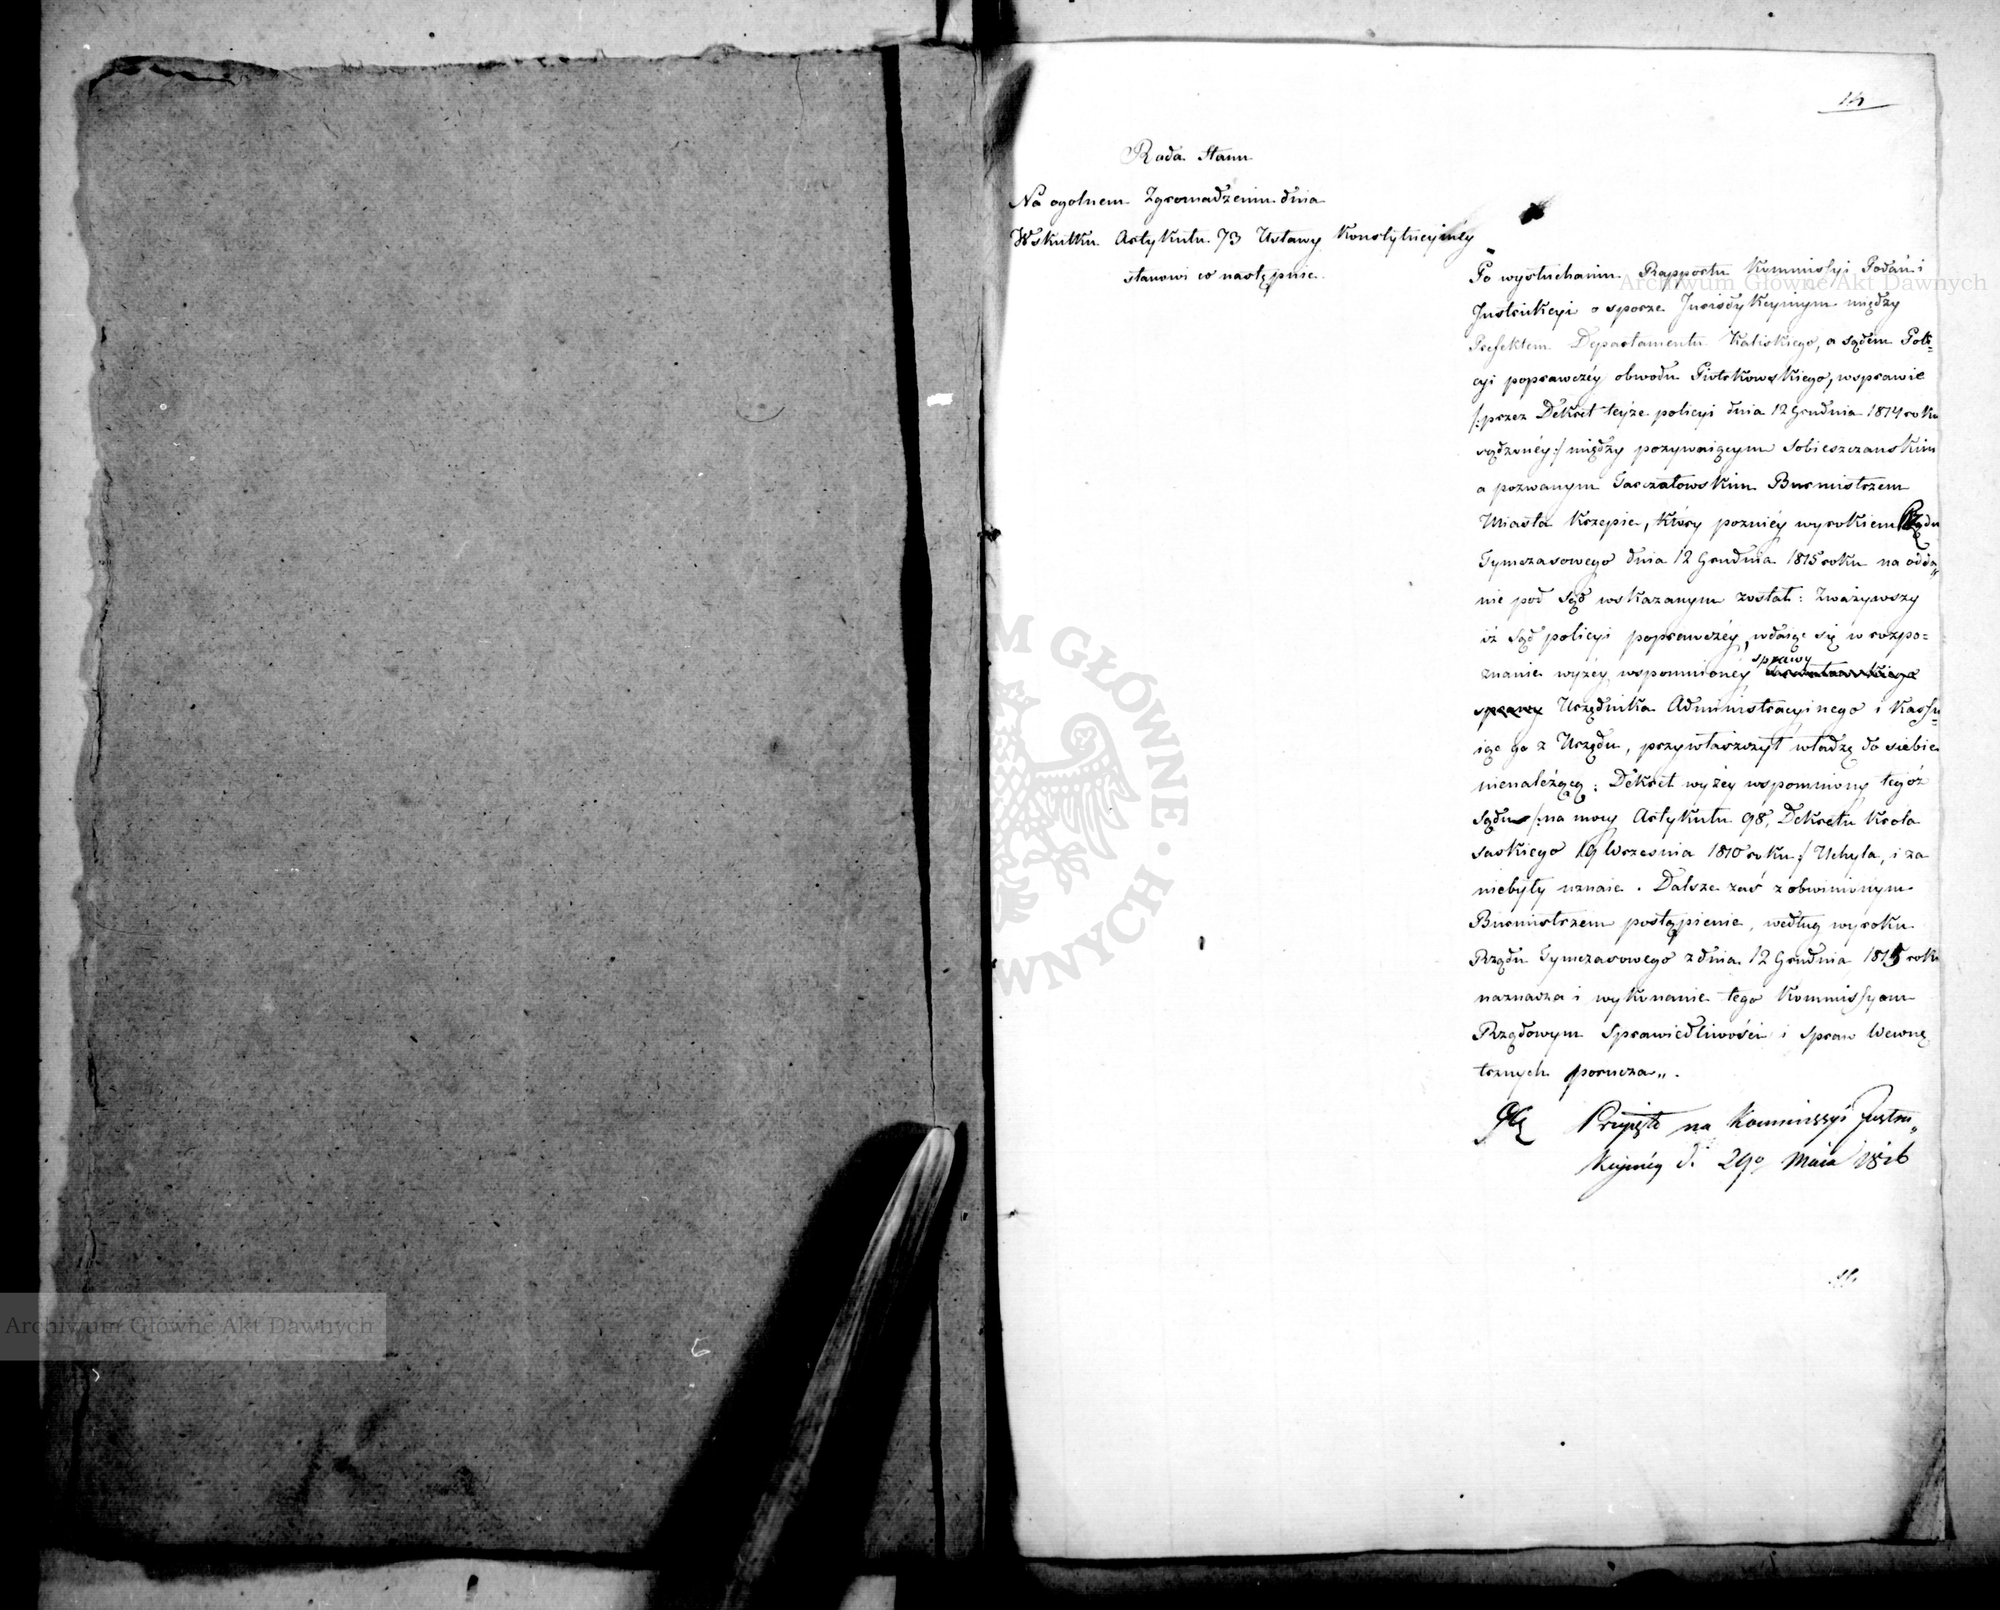 14
Rada Stanu
Na ogolnem Zgromadzeniu dnia
Wskutku Artykułu 73 Ustawy Konstytucyiney
stanowi co następuie
Po wysłuchaniu Rapportu Kommissyi Podań i
Instrukcyi o sporze Jurisdykcyinym między
Prefektem Departamentu Kaliskiego, a sądem Poli=
cyi poprawczéy obwodu Piotrkowskiego, wsprawie
/:przez Dekret teyże policyi dnia 12 Grudnia 1814 roku
sądzonéy:/ między pozywaiącym Sobieszczanskim
a pozwanym Garczałowskim Burmistrzem
Miasta Krzepic, który pozniéy wyrokiem Rządu
Tymczasowego dnia 12 Grudnia 1815 roku na odda„
nie pod Sąd wskazanym został: Zważywszy
iż Sąd policyi poprawczéy, wdaiąc się w rozpo=
znanie wyżéy wspomnionéy sprawy
sprawy Urzędnika Administracyinego i Kassu=
iąc go z Urzędu, przywłaszczył władzę do siebie
nienależącą: Dekret wyżéy wspomniony tegoż
Sądu /:na mocy Artykułu 98, Dekretu Króla
Saskiego 19 Wrzesnia 1810 roku:/ Uchyla, i za
niebyły uznaie. Dalsze zaś z obwinionym
Burmistrzem postąpienie, według wyroku
Rządu Tymczasowego z dnia 12 Grudnia 1815 roku
naznacza i wykonanie tego Kommissyom
Rządowym Sprawiedliwości i Spraw Wewnę
trznych porucza„.
Przyięte na Kommissyi Instru„
kcyinéy d. 29o Maia 1816
Archiwum Główne Akt Dawnych
Archiwum Główne Akt Dawnych